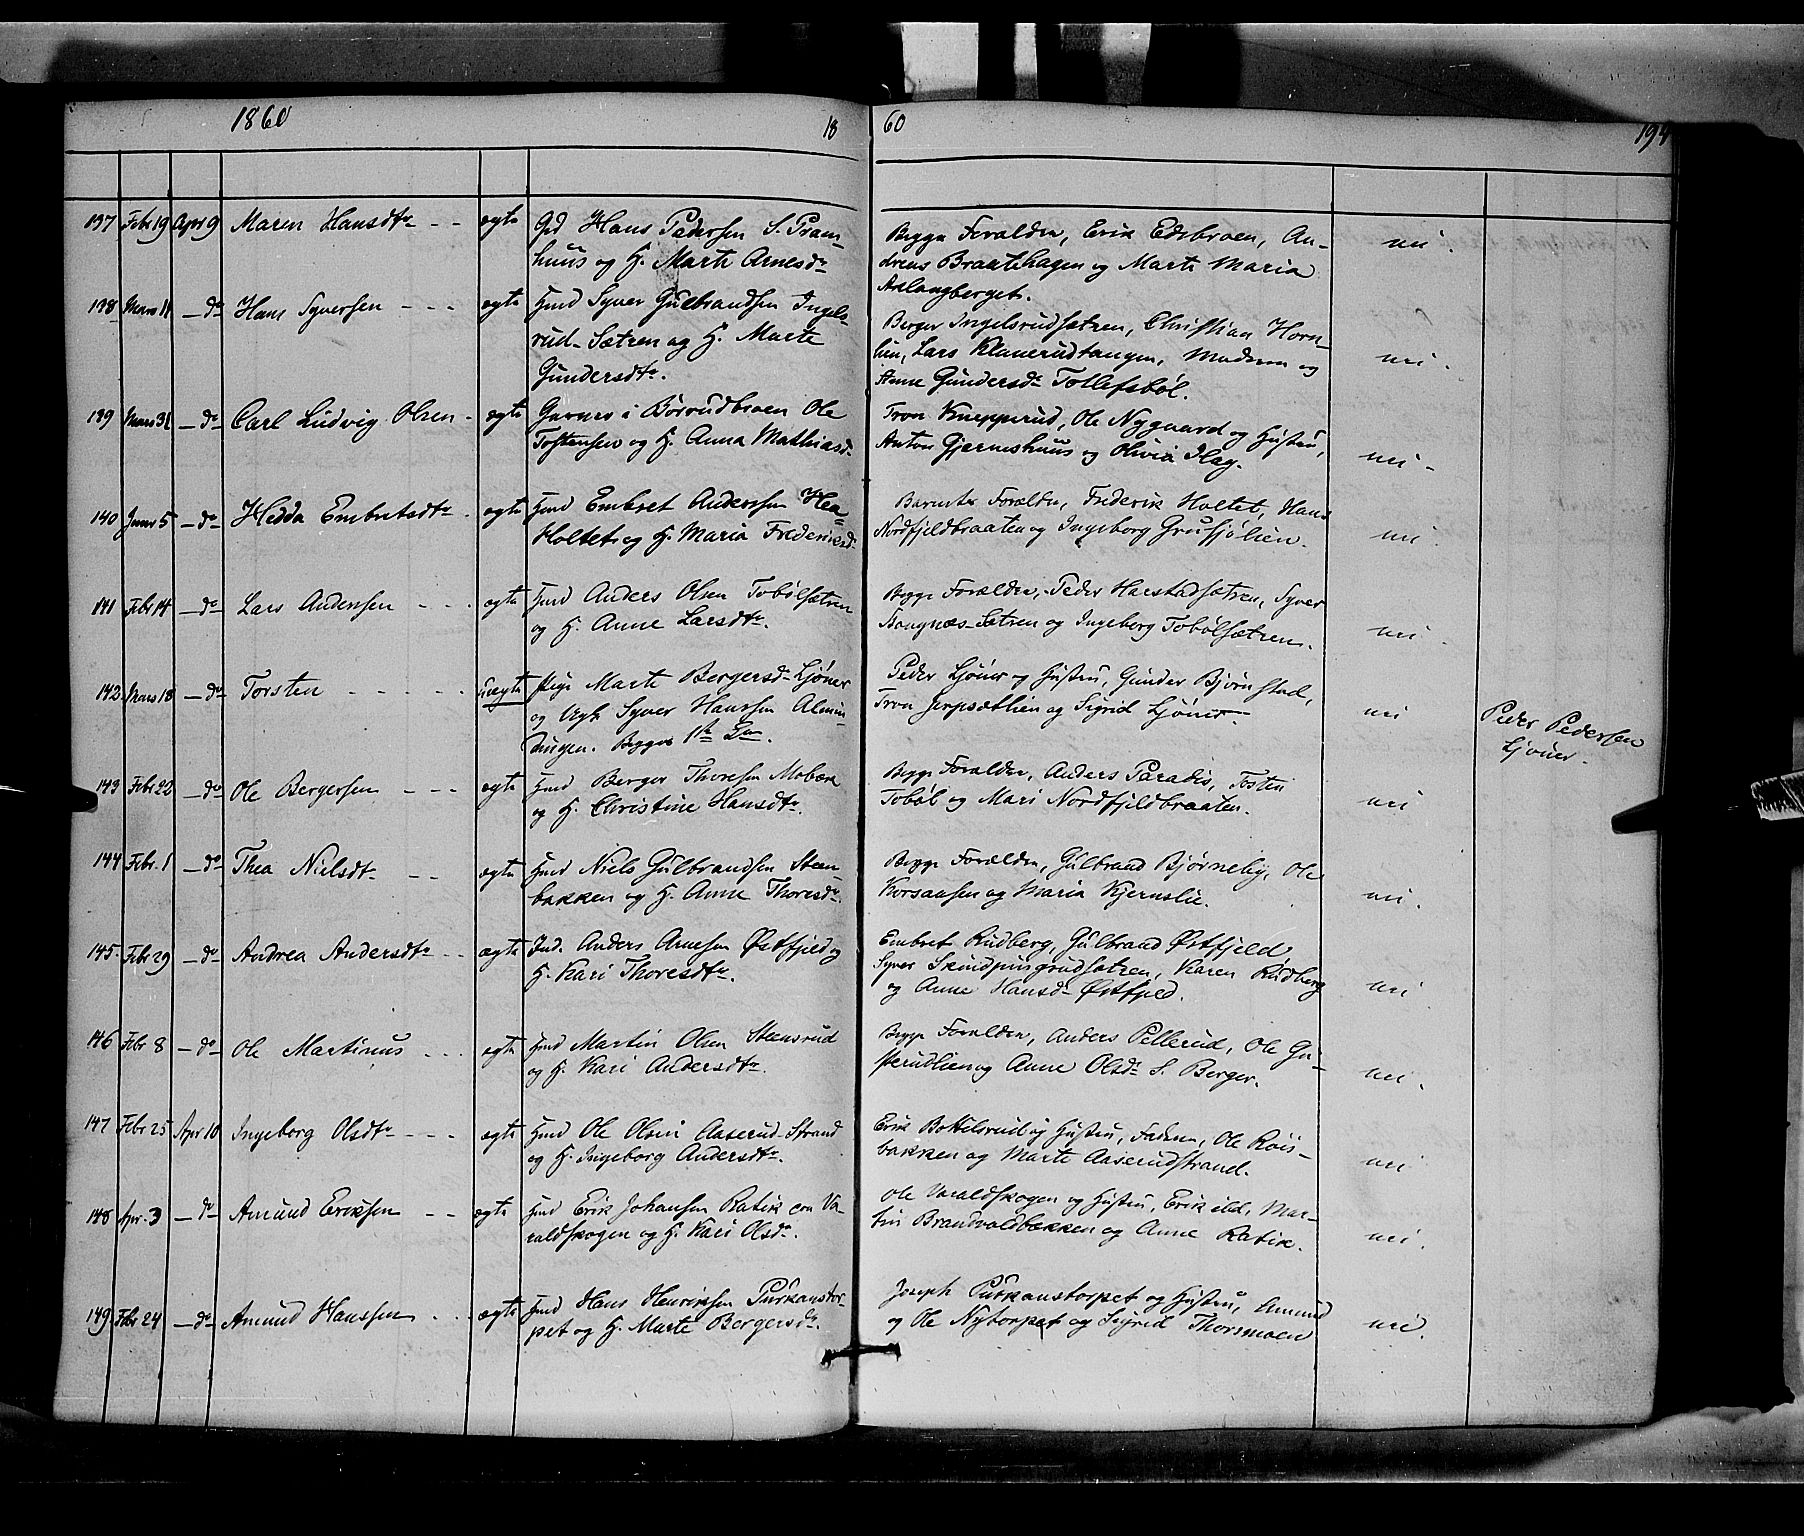 1860
18
60
137 Febr 19 Apr 9 Maren Hansdtr ægte Grd Hans Pedersen S. Pram-
huus og H. Marte Arnesdr
Begge Forældre, Erik Edsbroen, An-
dreas Braatehagen og Marte Maria
Aslangberget.
nei.
138 Mars 11 do Hans Syversen ægte Hmd Syver Gulbrandsen Ingels-
rud-Sætren og H. Marte
Gundersdtr.
Berger Ingelsrudsætren, Christian Horn-
lien, Lars Klanerudtangen, Moderen og
Anne Gundersdr Tollefsbøl.
nei.
139 Mars 31 do Carl Ludvig Olsen ægte Garver i Børrudbroen Ole
Tostensen og H. Anna Mathiasdr
Tron Knepperud, Ole Nygaard og Hustru,
Anton Gjerneshuus og Olivia Hag.
nei.
140 5 do Hedda Embretsdtr ægte Hmd Embret Anderssen Hea-
Holtet og H. Maria Frederiksdr
Barnets Forældre, Frederik Holtet, Hans
Nordfjeldbraaten og Ingeborg Grusjølien.
nei.
141 Febr 14 do Lars Andersen ægte Hmd Anders Olsen Tobølsætren
og H. Anne Larsdtr.
Begge Forældre, Peder Harstadsætren, Syver
Songnæs-Sætren og Ingeborg Tobølsætren.
nei
142 Mars 18 do Torsten uægte Pige Marte Bergersdr Ljøner
og Ugk Syver Hanssen Almin
dingen. Begges 1ste Lm.
Peder Ljøner og Hustru, Gunder Bjørnstad,
Tron Jerpsætlien og Sigrid Ljøner.
nei
Peder Pedersen
Ljøner.
143 Febr 22 do Ole Bergersen ægte Hmd Berger Thoresen Mobæk
og H. Christine Hansdtr.
Begge Forældre, Anders Paradis, Tosten
Tobøl og Mari Nordfjeldbraaten.
nei
144 Febr. 1 do Thea Nielsdtr ægte Hmd Niels Gulbrandsen Steen-
bakken og H. Anne Thoresdr.
Begge Forældre, Gulbrand Bjørneby, Ole
Korsaasen og Maria Kjernslie.
nei.
145. Febr 29 do Andrea Andersdtr ægte Ind. Anders Arnesen Østfjeld og
H. Kari Thoresdtr.
Embret Rudberg, Gulbrand Østfjeld
Syver Skindpungrudsætren, Karen Rudberg
og Anne Hansdr Østfjeld.
nei
146 Febr 8 do Ole Martinus ægte Hmd Martin Olsen Steensrud
og H. Kari Andersdtr.
Begge Forældre, Anders Pellerud, Ole Gu-
sterudlien og Anne Olsdr S. Berger.
nei.
147 Febr 25 Apr 10 Ingeborg Olsdtr ægte Hmd Ole Olsen Aaserud-Strand
og H. Ingeborg Andersdtr.
Erik Bottelsrud og Hustru, Faderen, Ole Røis-
bakken og Marte Aaserudstrand.
nei
148 Apr. 3 do Amund Eriksen ægte Hmd Erik Johansen Ratik ved Va-
raldskogen og H. Kari Olsdr.
Ole Varaldskogen og Hustru, Erik ibd, Mar-
tin Brandvoldbakken og Anne Ratik.
nei.
149 Febr 24 do Amund Hanssen ægte Hmd Hans Henriksen Purkanstor-
pet og H. Marte Bergersdr.
Joseph Purkanstorpet og Hustru, Amund
og Ole Nytorpet og Sigrid Thorsmoen
nei.